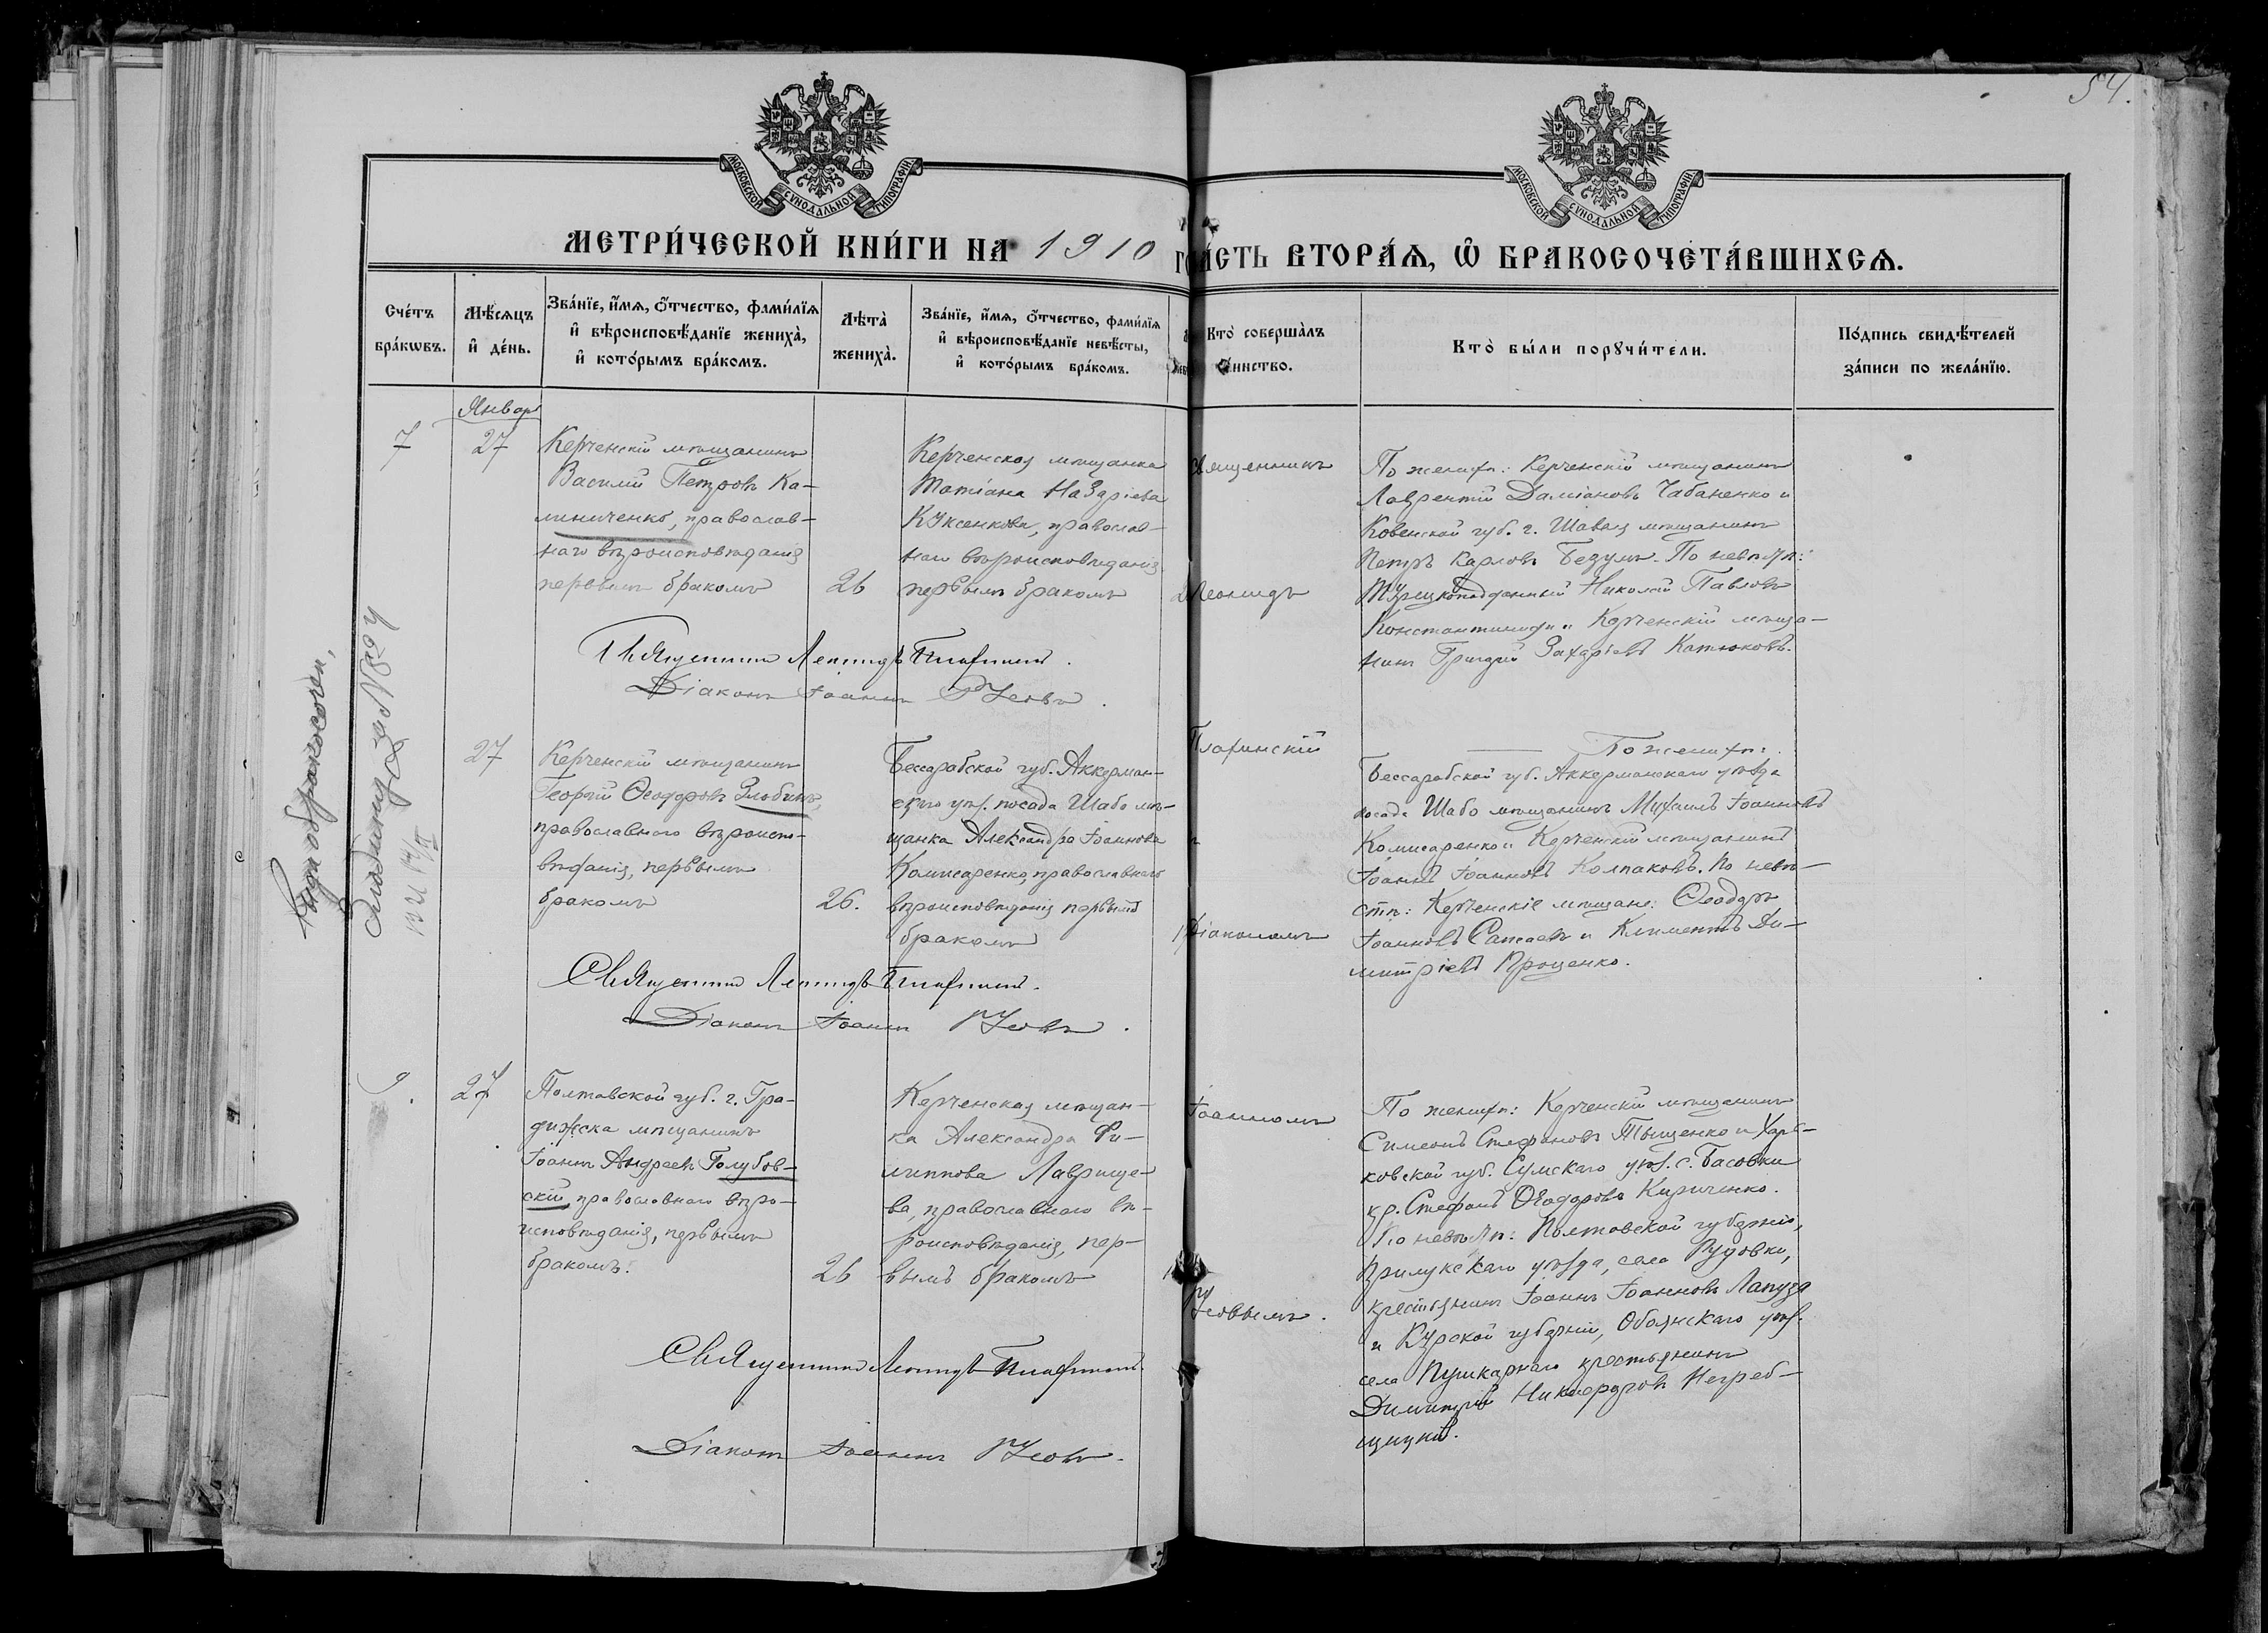 54.
МОСКОВСКОЙ СѴНОДАЛЬНОЙ ТИПОГРАФІИ
МОСКОВСКОЙ СѴНОДАЛЬНОЙ ТИПОГРАФІИ
МЕТРИ́ЧЕСКОЙ КНИ́ГИ НА 1910
ЧА́СТЬ ВТОРА́Ѧ, Ѽ БРАКОСОЧЕТА́ВШИХСѦ.
Сче́тъ бра́кѡвъ.
Мѣ́сѧцъ и҆ де́нь.
Зва́нїе, и҆́мѧ, ѻ҆́тчество, фамилїѧ
и҆ вѣроисповѣ́данїе жениха̀,
и҆ кото́рымъ бра́комъ.
Лѣта̀ жениха̀.
Зва́нїе, и҆́мѧ, ѻ҆́тчество, фамилїѧ
и҆ вѣроисповѣ́данїе невѣ́сты,
и҆ кото́рымъ бра́комъ.
Кто̀ соверша́лъ
Кто̀ бы́ли порꙋчи́тели.
По́дпись свидѣ́телей
за́писи по жела́нїю.
Январь
7
27
Керченскій мѣщанинъ
Василій Петровъ Ка-
линиченко, православ-
наго вѣроисповѣданія
первымъ бракомъ
26
Керченская мѣщанка
Татіана Назаріева
Куксенкова, православ-
наго вѣроисповѣданія
первымъ бракомъ
Священникъ
Леонидъ
По женихѣ: Керченскій мѣщанинъ
Лаврентій Даміановъ Чабаненко и
Ковенской губ. г. Шавля мѣщанинъ
Петръ Карловъ Безулъ. По невѣстѣ:
Турецкоподданный Николай Павловъ
Константиниди и Керченскій мѣща-
нинъ Григорій Захаріевъ Катюковъ.
Священникъ Леонидъ Плафинскій.
Діаконъ Іоаннъ Усовъ.
27
Керченскій мѣщанинъ
Георгій Ѳеодоровъ Злобинъ,
православнаго вѣроиспо-
вѣданія, первымъ
бракомъ
26.
Бессарабской губ. Аккерман-
скаго уѣз. посада Шабо мѣ-
щанка Александра Іоаннова
Комисаренко, православнаго
вѣроисповѣданія первымъ
бракомъ
Плафинскій
и
Діакономъ
По женихѣ:
Бессарабской губ. Аккерманскаго уѣзда
посада Шабо мѣщанинъ Михаилъ Іоанновъ
Комисаренко и Керченскій мѣщанинъ
Іоаннъ Іоанновъ Колпаковъ. По невѣ-
стѣ: Керченскіе мѣщане: Ѳеодоръ
Іоанновъ и Климентъ Ди-
митріевъ Проценко.
Священникъ Леонидъ Плафинскій.
Діаконъ Іоаннъ Усовъ.
Злобину за № 224
9.
27
Полтавской губ. г. Гра-
дижска мѣщанинъ
Іоаннъ Андреевъ Голубов-
скій, православнаго вѣро-
исповѣданія, первымъ
бракомъ.
26
Керченская мѣщан-
ка Александра Фи-
липпова Лаврище-
ва, православнаго вѣ-
роисповѣданія, пер-
вымъ бракомъ
Іоанномъ
Усовымъ.
По женихѣ: Керченскій мѣщанинъ
Симеонъ Стефановъ Тыщенко и Харь-
ковской губ. Сумскаго уѣз. с. Басовки
кр. Стефанъ Ѳеодоровъ Кириченко.
По невѣстѣ: Полтавской губерніи,
Прилукскаго уѣзда, села Рудовки,
крестьянинъ Іоаннъ Іоанновъ Лапуза
и Курской губерніи, Обоянскаго уѣз.
села Пушкарнаго крестьянинъ
Димитрій Никифоровъ Негреб-
ицкій.
Священникъ Леонидъ Плафинскій.
Діаконъ Іоаннъ Усовъ.